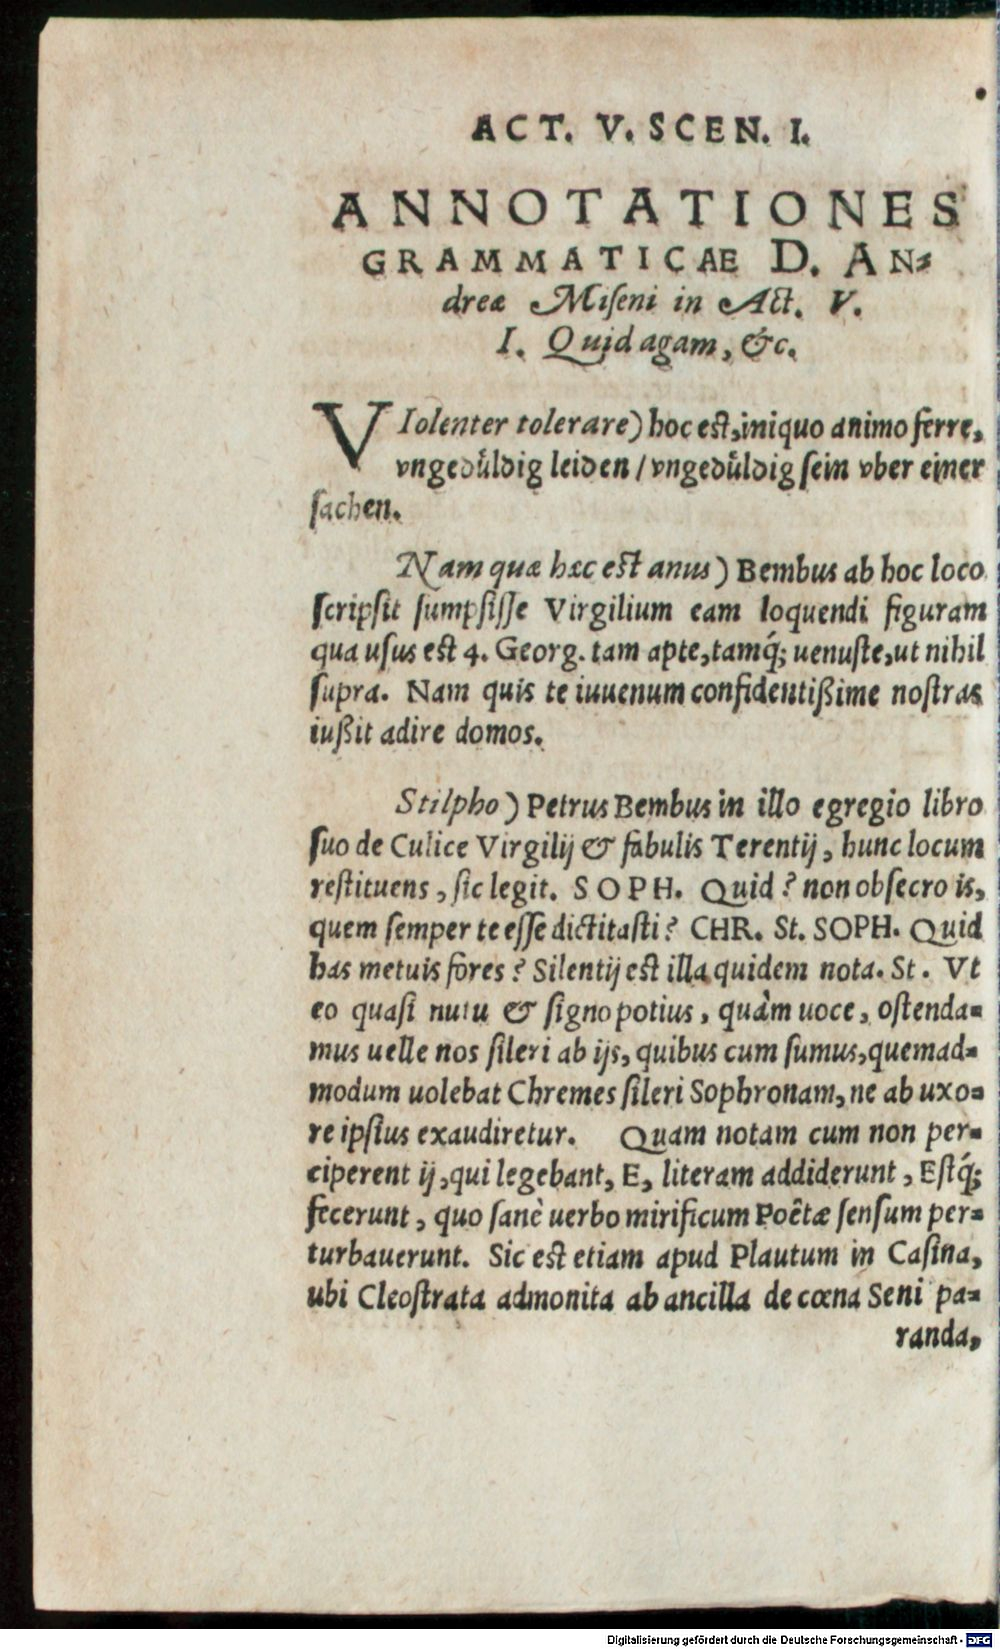 ACT. V. SCEN. I.
ANNOTATIONES
GRAMMATICAE D. AN⸗
dreæ Miſeni in Act. V.
I. Quid agam, &c.
VIolenter tolerare) hoc est, iniquo animo ferre,
vngedůldig leiden / vngedůldig ſein vber einer
ſachen.
Nam quæ hæc est anus) Bembus ab hoc loco
ſcripſit ſumpſiſſe Virgilium eam loquendi figuram
qua uſus est 4. Georg. tam apte, tamq́; uenuſte, ut nihil
ſupra. Nam quis te iuuenum confidentißime noſtras
iußit adire domos.
Stilpho) Petrus Bembus in illo egregio libro
ſuo de Culice Virgilij & fabulis Terentij, hunc locum
reſtituens, ſic legit. SOPH. Quid? non obſecro is,
quem ſemper te eſſe dictitaſti? CHR. St. SOPH. Quid
has metuis fores? Silentij est illa quidem nota. St. Vt
eo quaſi nutu & ſigno potius, quàm uoce, oſtenda⸗
mus uelle nos ſileri ab ijs, quibus cum ſumus, quemad⸗
modum uolebat Chremes ſileri Sophronam, ne ab uxo⸗
re ipſius exaudiretur. Quam notam cum non per⸗
ciperent ij, qui legebant, E, literam addiderunt, Eſtq́;
fecerunt, quo ſanè uerbo mirificum Poêtæ ſenſum per⸗
turbauerunt. Sic est etiam apud Plautum in Caſina,
ubi Cleoſtrata admonita ab ancilla de cœna Seni pa⸗
randa,
Digitalisierung gefördert durch die Deutsche Forschungsgemeinschaft - DFG